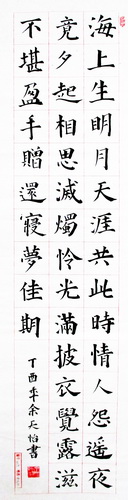 海上生明月天涯共此時情人怨遙夜
竟夕起相思滅燭怜光滿披衣覺露滋
不堪盈手贈還寢夢佳期
丁酉秊余天怡書